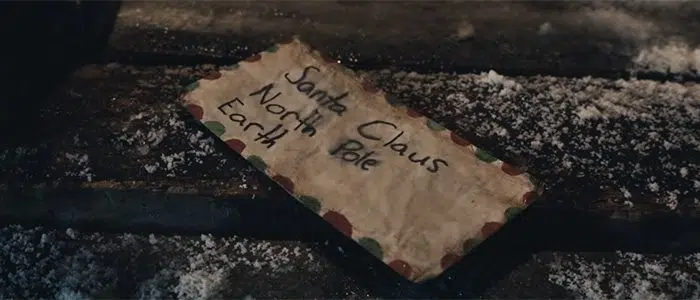 Santa Claus
North Pole
Earth